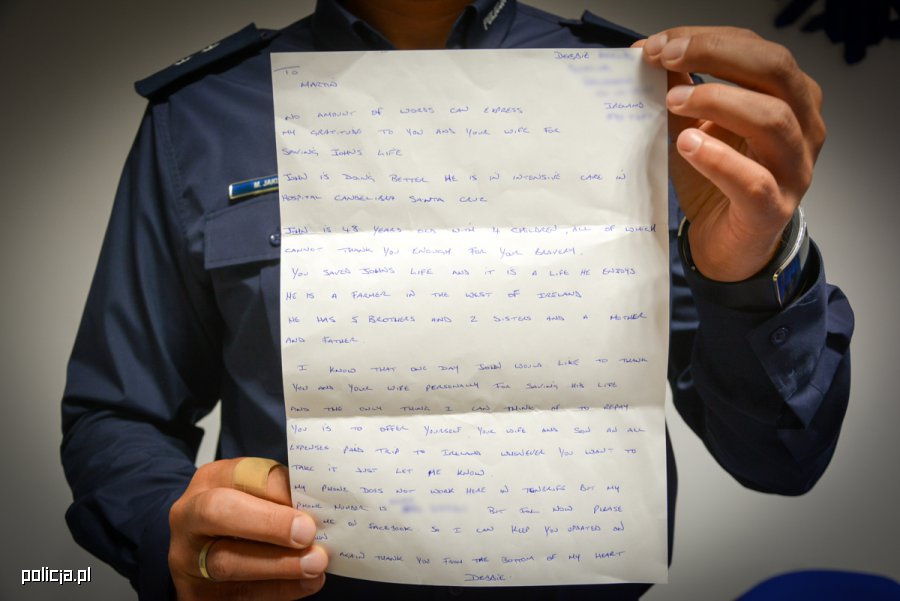 POLICJA
M. JAK
TO
DEBBIE
MARTIN
IRELAND
NO AMOUNT OF WORDS CAN EXPRESS
MY GRATITUDE TO YOU AND YOUR WIFE FOR
SAVING JOHNS LIFE
JOHN IS DOING BETTER HE IS IN INTENSIVE CARE IN
HOSPITAL CANDELIBRA SANTA CRUZ
JOHN IS 48 YEARS OLD WITH 4 CHILDREN, ALL OF WHICH
CANNOT THANK YOU ENOUGH FOR YOUR BRAVERY.
YOU SAVED JOHNS LIFE AND IT IS A LIFE HE ENJOYS
HE IS A FARMER IN THE WEST OF IRELAND
HE HAS 5 BROTHERS AND 2 SISTERS AND A MOTHER
AND FATHER.
I KNOW THAT ONE DAY JOHN WOULD LIKE TO THANK
YOU AND YOUR WIFE PERSONALLY FOR SAVING HIS LIFE
AND THE ONLY THING I CAN THINK OF TO REPAY
YOU IS TO OFFER YOURSELF YOUR WIFE AND SON AN ALL
EXPENSES PAID TRIP TO IRELAND WHENEVER YOU WANT TO
TAKE IT JUST LET ME KNOW.
MY PHONE DOES NOT WORK HERE IN TENERIFE BUT MY
PHONE NUMBER IS BUT FOR NOW PLEASE
ME ON FACEBOOK SO I CAN KEEP YOU UPDATED ON
AGAIN THANK YOU FROM THE BOTTOM OF MY HEART
DEBBIE.
policja.pl